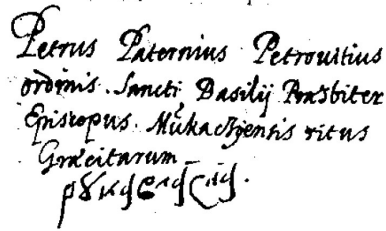 Petrus Paternius Petrouitius
ordinis Sancti Basilij Præsbiter
Episcopus Mukachjensis ritus
Græcitarum